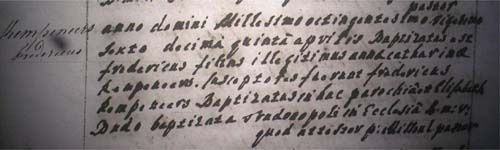 pastor
Kempeneers anno domini Millesimo octingentesimo vigesimo
fredericus sexto decima quinta aprilis Baptizatus est
fredericus filius illegitimus annae catharinae
Kempeneers. susceptores fuerunt fredericus
Kempeneers Baptizatus in hac parochia et Elisabeth
Dudo baptizata Trudonopoli in Ecclesia B:m:v:
quod attestor p: Mittal pastor